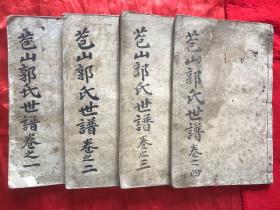 苞山郭氏世譜卷之一
苞山郭氏世譜卷之二
苞山郭氏世譜卷之三
苞山郭氏世譜卷之四